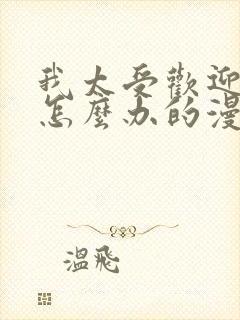 我太受歡迎
怎麼办的漫
溫飛